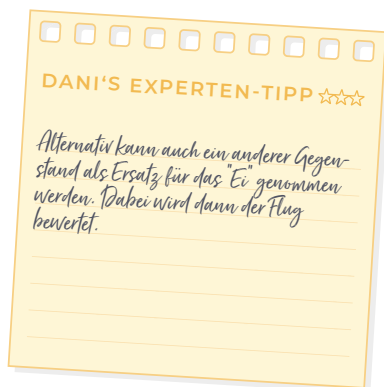 DANI'S EXPERTEN-TIPP
Alternativ kann auch ein anderer Gegen-
stand als Ersatz für das "Ei" genommen
werden. Dabei wird dann der Flug
bewertet.